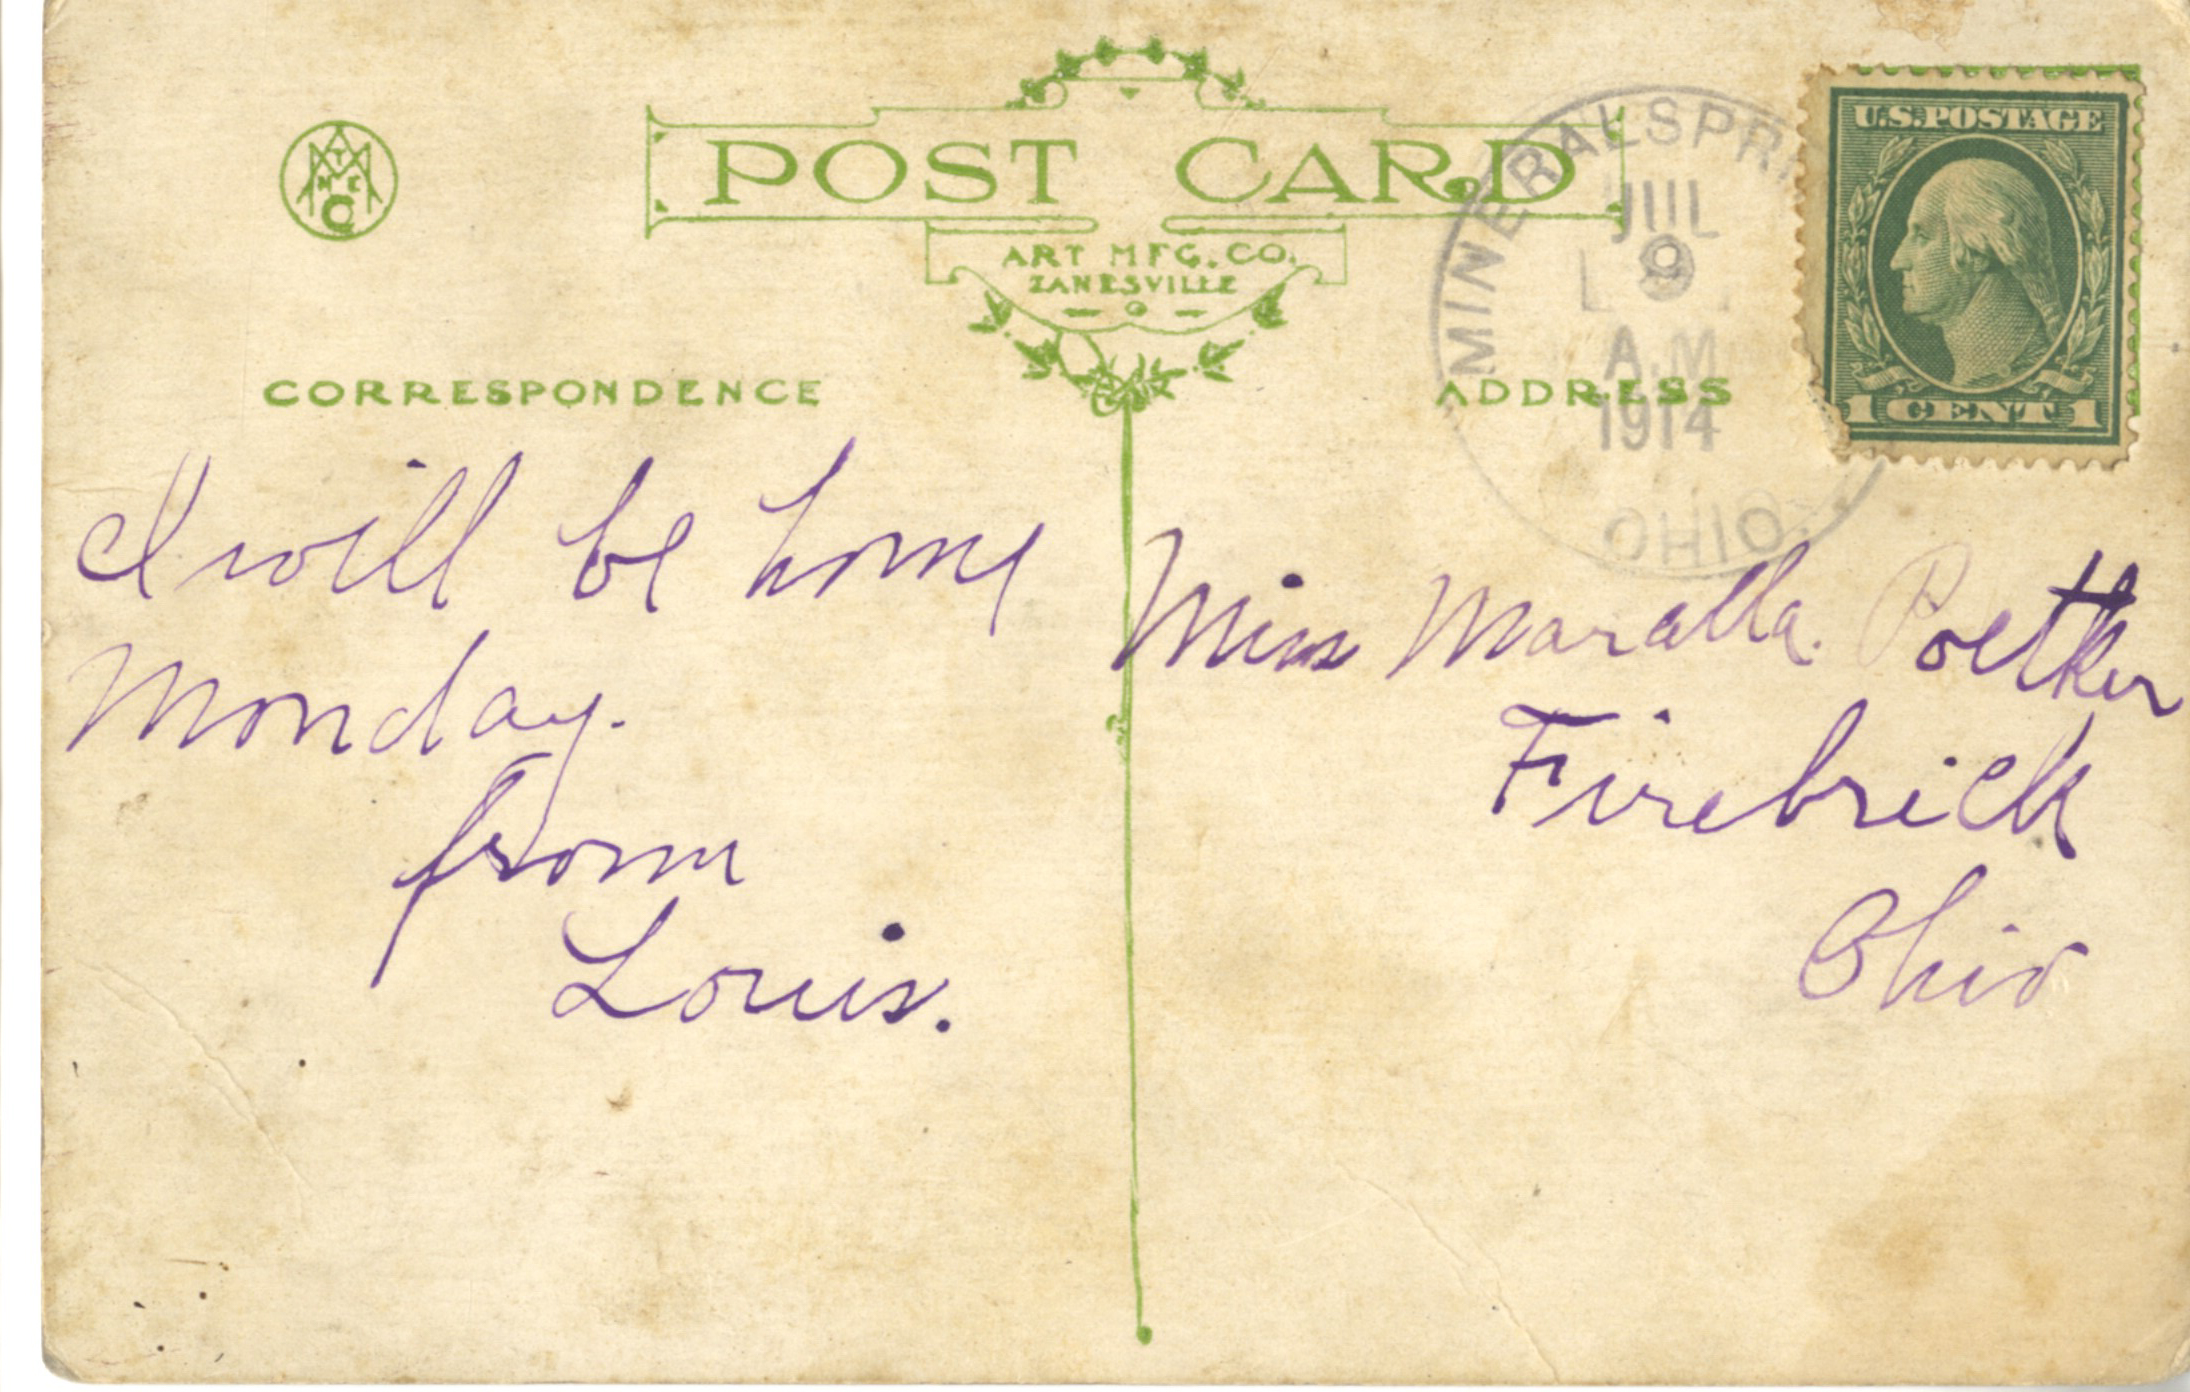 POST CARD
ART MFG. CO.
ZANESVILLE
CORRESPONDENCE
I will be home
Monday.
from
Louis.
MINERALSPRI
JUL
9
A.M
1914
OHIO.
U.S. POSTAGE
1 CENT 1
ADDRESS
Miss Maralla. Poetker
Firebrick
Ohio